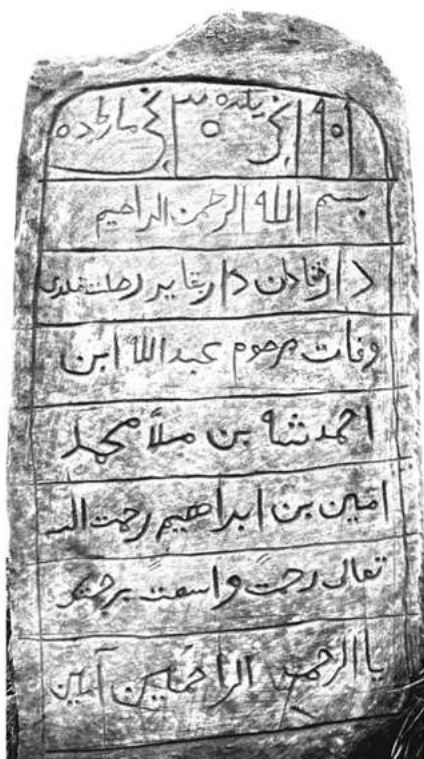 نچی يلده نچی مارطده
بسم الله الرحمن الراهيم
دارفنادن داربقايه رحلت قلدی
وفات مرحوم عبدالله ابن
احمدشاه بن ملا محمد
امين بن ابراهيم رحمت الله
تعالى رحمتً واسعتً برحمتك
يا الرحمن الراحمين آمين